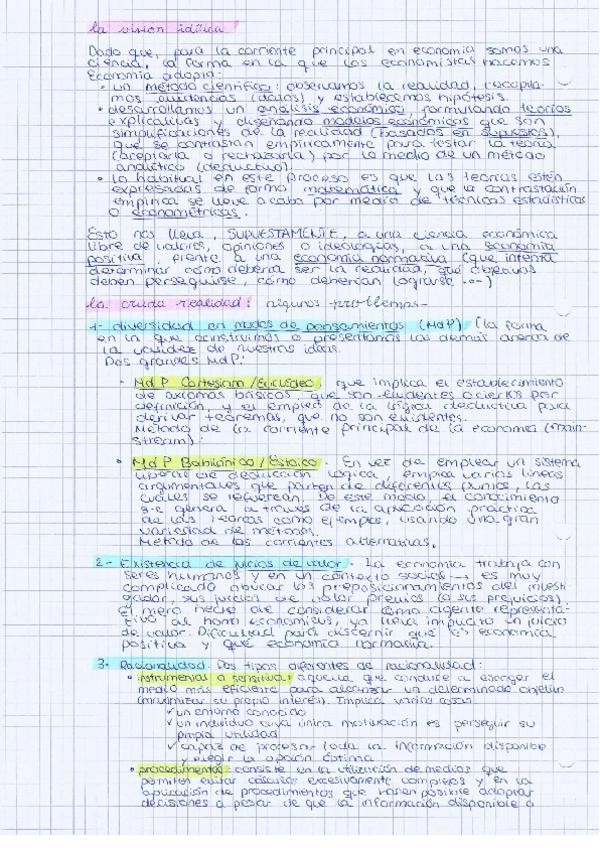 la visión idílica
Dado que, para la corriente principal en economía somos una
ciencia, la forma en la que los economistas hacemos
Economía adopta:
• un método científico: observamos la realidad, recopila-
mos evidencias (datos) y establecemos hipótesis.
• desarrollamos un análisis económico, formulando teorías
explicativas y diseñando modelos económicos que son
simplificaciones de la realidad (basados en supuestos),
que se contrastan empíricamente para testar la teoría
(aceptarla o rechazarla) por lo medio de un método
analítico (deductivo).
• lo habitual en este proceso es que las teorías estén
expresadas de forma matemática y que la contrastación
empírica se lleve a cabo por medio de técnicas estadísticas
o econométricas.
Esto nos lleva, SUPUESTAMENTE, a una ciencia económica
libre de valores, opiniones o ideologías, a una economía
positiva, frente a una economía normativa (que intenta
determinar cómo debería ser la realidad, qué objetivos
deben perseguirse, cómo deberían lograrse ...)
la cruda realidad: algunos problemas-
1- diversidad en modos de pensamientos (MdP) (la forma
en la que construimos o presentamos los demás acerca de
la validez de nuestras ideas.
Dos grandes MdP:
• MdP Cartesiano/Euclideo, que implica el establecimiento
de axiomas básicos, que son evidentes o ciertos por
definición, y el empleo de la lógica deductiva para
derivar teoremas, que no son evidentes.
Método de la corriente principal de la economía (main-
stream).
• MdP Babilónico/Estoico. En vez de emplear un sistema
de deducción lógica, emplea varias líneas
argumentales que parten de diferentes puntos, las
cuales se refuerzan. De este modo, el conocimiento
se genera a través de la aplicación práctica
de las teorías como ejemplos, usando una gran
variedad de métodos.
Método de las corrientes alternativas.
2- Existencia de juicios de valor. La economía trabaja con
seres humanos y en un contexto social → es muy
complicado los preposicionamientos del investi-
gador, sus juicios de valor previos (o sus prejuicios).
El mero hecho de considerar como agente representa-
tivo al homo economicus, ya lleva implícito un juicio
de valor. Dificultad para discernir qué es economía
positiva y qué economía normativa.
3- Racionalidad. Dos tipos diferentes de racionalidad:
• instrumental o sensitiva: aquella que conduce a escoger el
medio más eficiente para alcanzar un determinado objetivo
(maximizar su propio interés). Implica varias cosas:
✓ un entorno conocido
✓ un individuo cuya única motivación es perseguir su
propia utilidad
✓ capaz de procesar toda la información disponible
y elegir la opción óptima
• procedimental: consiste en la utilización de medios que
permiten evitar cálculos excesivamente complejos y en la
aplicación de procedimientos que hacen posible adoptar
decisiones a pesar de que la información disponible o